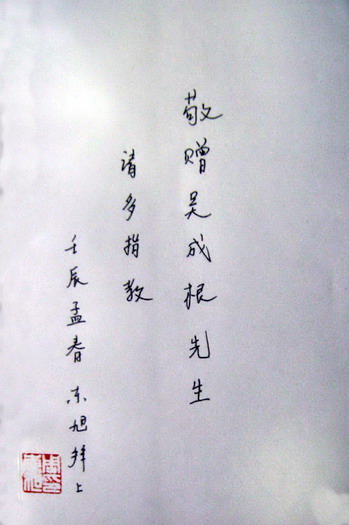 敬赠吴成根先生
请多指教
壬辰孟春东旭拜上